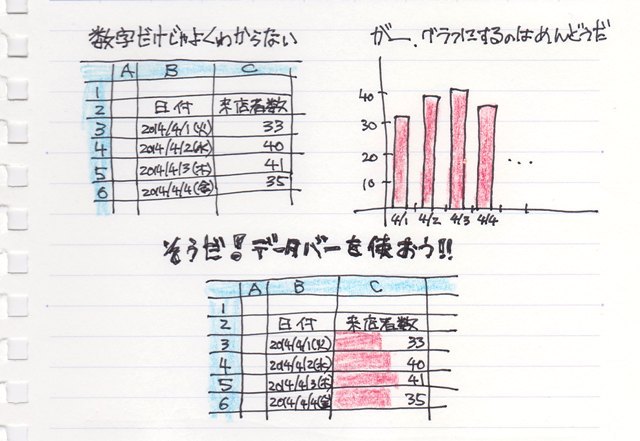 数字だけじゃよくわからない
A B C
1
2 日付 来店者数
3 2014/4/1(火) 33
4 2014/4/2(水) 40
5 2014/4/3(木) 41
6 2014/4/4(金) 35
がー、グラフにするのはめんどうだ
40
30
20
10
4/1 4/2 4/3 4/4
...
そうだ!データバーを使おう!!
A B C
1
2 日付 来店者数
3 2014/4/1(火) 33
4 2014/4/2(水) 40
5 2014/4/3(木) 41
6 2014/4/4(金) 35